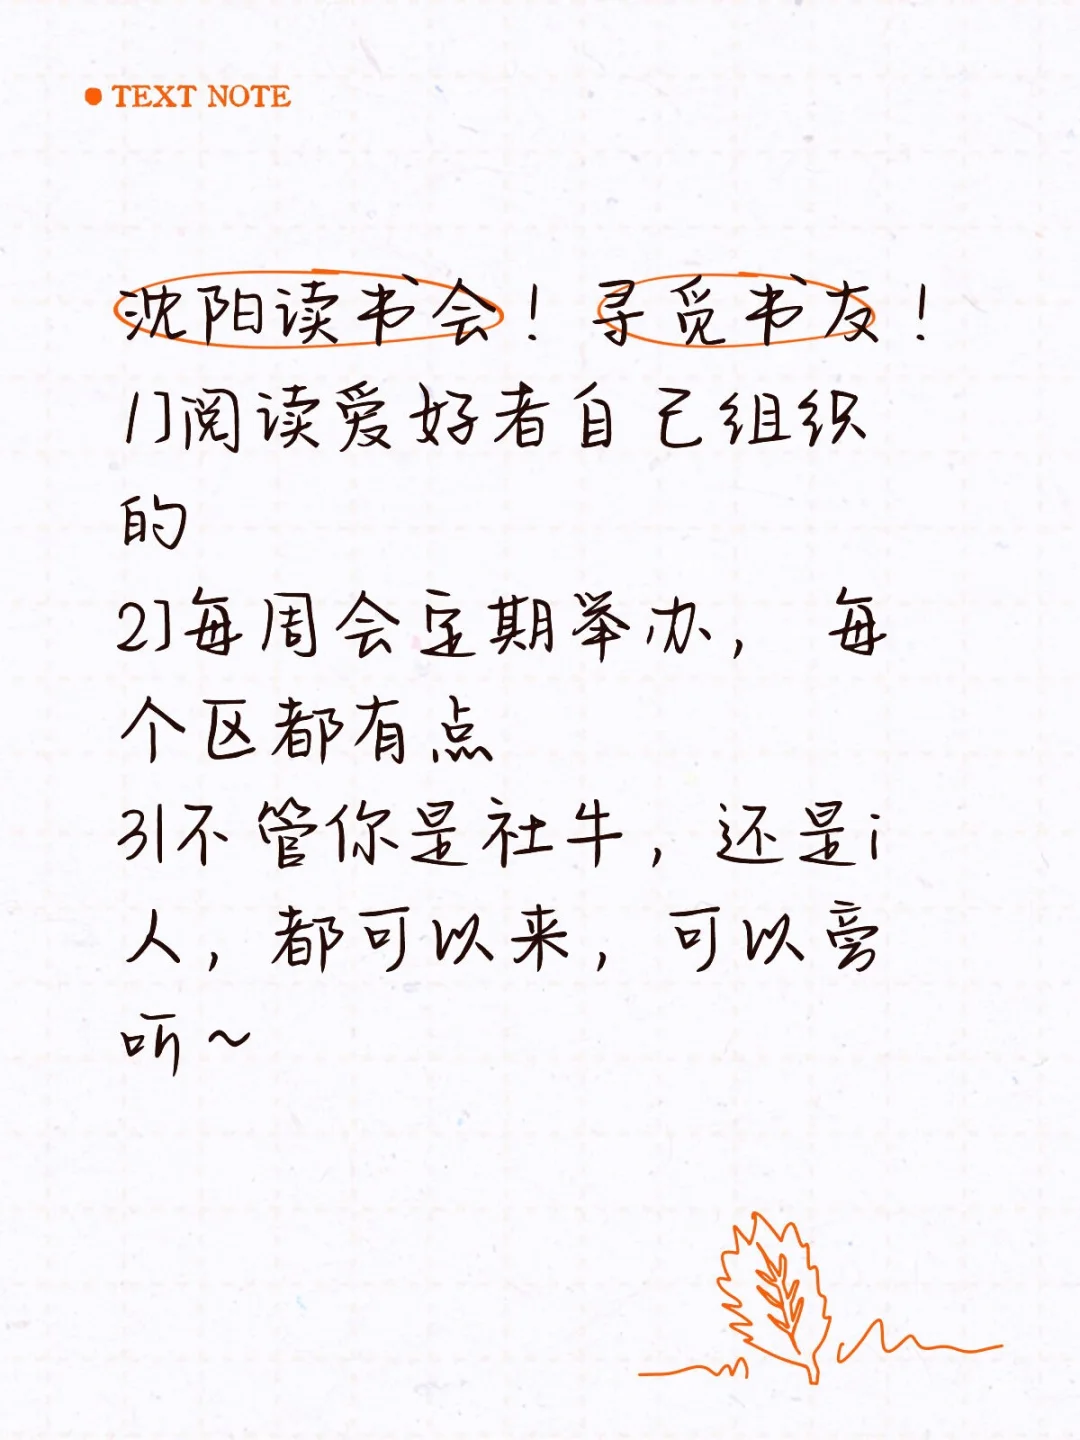 TEXT NOTE
沈阳读书会！寻觅书友！
1]阅读爱好者自己组织
的
2]每周会定期举办，每
个区都有点
3]不管你是社牛，还是i
人，都可以来，可以旁
听~